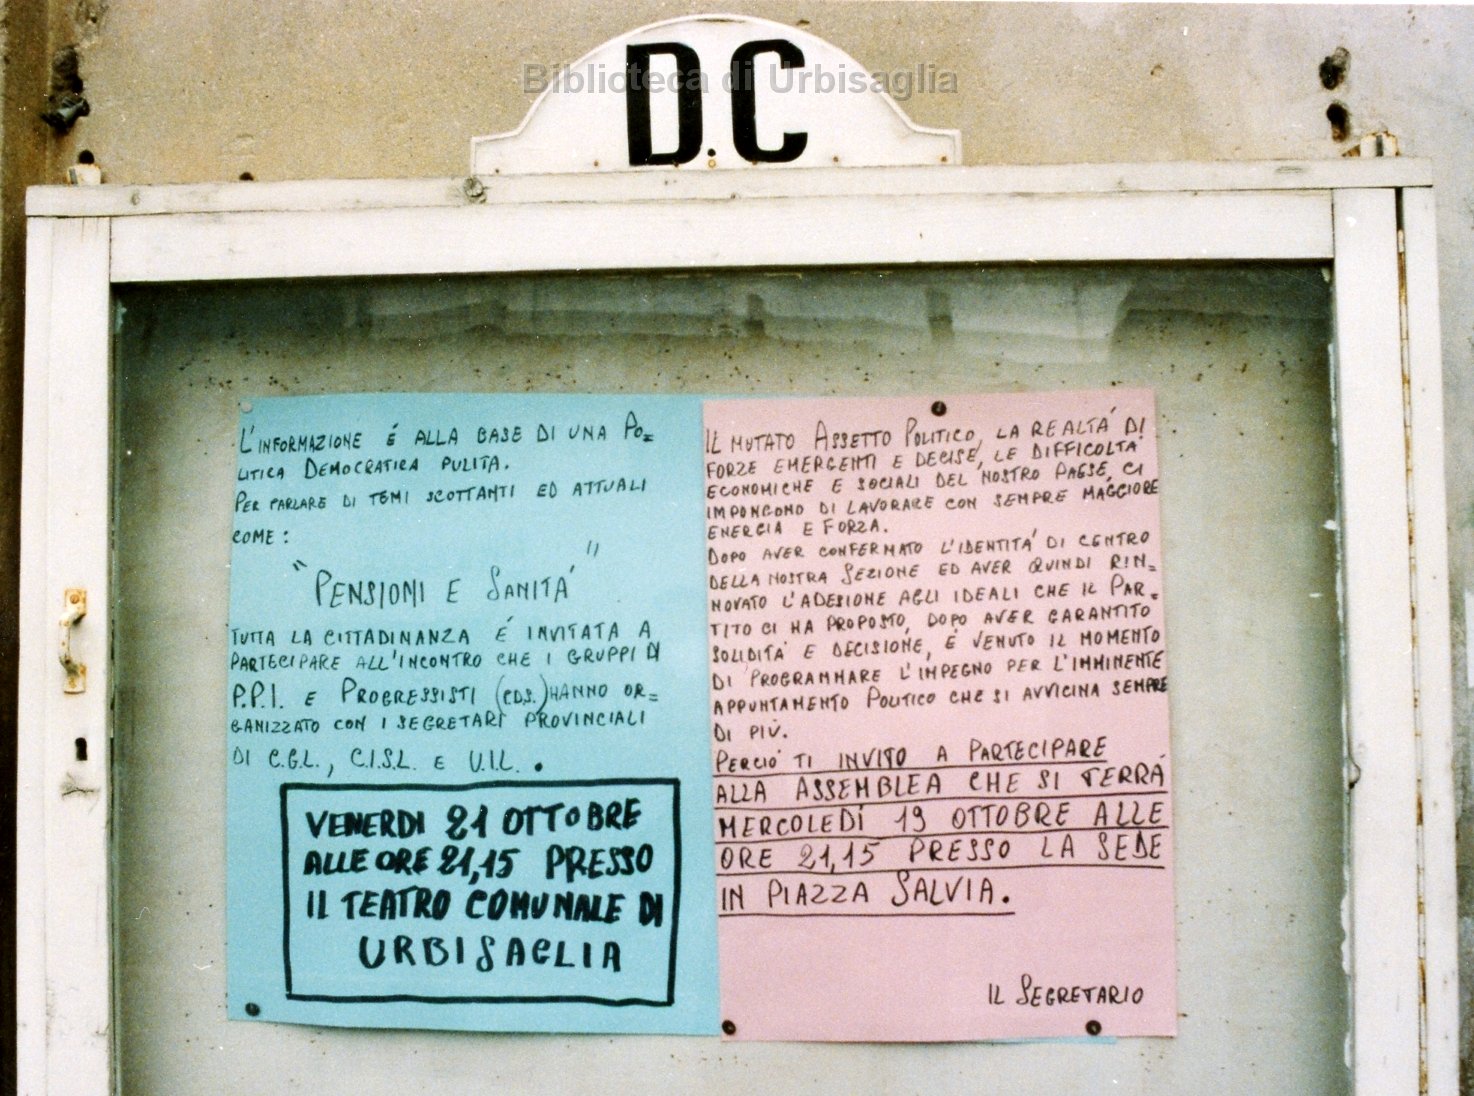 D.C
Biblioteca di Urbisaglia
L'INFORMAZIONE É ALLA BASE DI UNA PO=
LITICA DEMOCRATICA PULITA.
PER PARLARE DI TEMI SCOTTANTI ED ATTUALI
COME:
"PENSIONI E SANITÁ"
TUTTA LA CITTADINANZA É INVITATA A
PARTECIPARE ALL'INCONTRO CHE I GRUPPI DI
P.P.I. E PROGRESSISTI (CDS.) HANNO OR=
GANIZZATO CON I SEGRETARI PROVINCIALI
DI C.G.L., C.I.S.L. E U.I.L..
VENERDI 21 OTTOBRE
ALLE ORE 21,15 PRESSO
IL TEATRO COMUNALE DI
URBISAGLIA
IL MUTATO ASSETTO POLITICO, LA REALTÁ DI
FORZE EMERGENTI E DECISE, LE DIFFICOLTÁ
ECONOMICHE E SOCIALI DEL NOSTRO PAESE, CI
IMPONGONO DI LAVORARE CON SEMPRE MAGGIORE
ENERGIA E FORZA.
DOPO AVER CONFERMATO L'IDENTITÁ DI CENTRO
DELLA NOSTRA SEZIONE ED AVER QUINDI RIN=
NOVATO L'ADESIONE AGLI IDEALI CHE IL PAR=
TITO CI HA PROPOSTO, DOPO AVER GARANTITO
SOLIDITÁ E DECISIONE, É VENUTO IL MOMENTO
DI PROGRAMMARE L'IMPEGNO PER L'IMMINENTE
APPUNTAMENTO POLITICO CHE SI AVVICINA SEMPRE
DI PIÙ.
PERCIÓ TI INVITO A PARTECIPARE
ALLA ASSEMBLEA CHE SI TERRÁ
MERCOLEDÍ 19 OTTOBRE ALLE
ORE 21,15 PRESSO LA SEDE
IN PIAZZA SALVIA.
IL SEGRETARIO